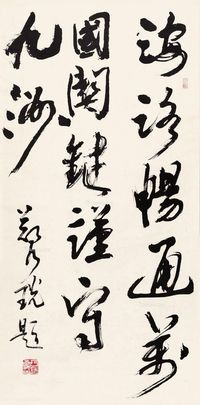 海路暢通萬
國關鍵謹守
九洲
題